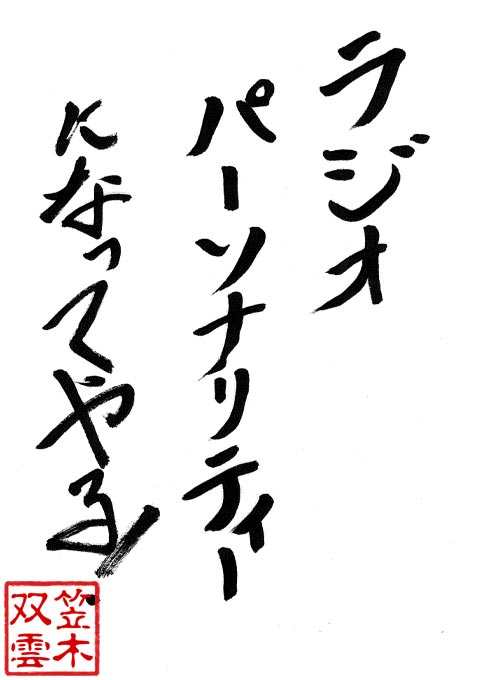 ラジオ
パーソナリティー
になってやる
笠木
双雲